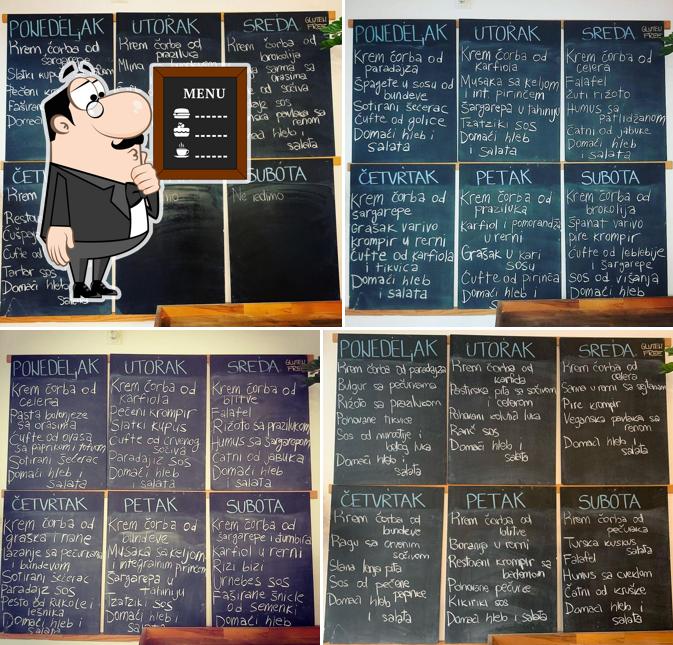 PONEDELJAK
Krem čorba od
šargarepe
UTORAK
Krem čorba od
praziluka
SREDA
GLUTEN
FREE
Krem čorba od
brokolija
MENU
ČET
Krem
SUBOTA
Ne radimo
PONEDELJAK
Krem čorba od
paradajza
Špagete u sosu od
bundeve
Sotirani šećerac
Ćufte od golice
Domaći hleb i
salata
UTORAK
Krem čorba od
karfiola
Musaka sa keljom
i int. pirinčem
Šargarepa u tahiniju
Tzatziki sos
Domaći hleb
i salata
SREDA
GLUTEN
FREE
Krem čorba od
celera
Falafel
Žuti rižoto
Humus sa
patlidžanom
Čatni od jabuke
Domaći hleb i
salata
ČETVRTAK
Krem čorba od
šargarepe
Grašak varivo
Krompir u rerni
Ćufte od karfiola
i tikvica
Domaći hleb
i salata
PETAK
Krem čorba od
praziluka
Karfiol i pomorandža
u rerni
Grašak u kari
sosu
Ćufte od pirinča
Domaći hleb i
SUBOTA
Krem čorba od
brokolija
Spanać varivo
Pire krompir
Ćufte od leblebije
i šargarepe
Sos od višanja
Domaći hleb
PONEDELJAK
Krem čorba od
celera
Pasta bolonjeze
sa orasima
Ćufte od ovasa
sa paprikom i tofuom
Sotirani šećerac
Domaći hleb i
salata
UTORAK
Krem čorba od
karfiola
Pečeni krompir
Slatki kupus
Ćufte od crvenog
sočiva
Paradajz sos
Domaći hleb i
salata
SREDA
GLUTEN
FREE
Krem čorba od
blitve
Falafel
Rižoto sa prazilukom
Humus sa šargarepom
Čatni od jabuka
Domaći hleb i
salata
ČETVRTAK
Krem čorba od
graška i nane
Lazanje sa pečurkama
i bundevom
Sotirani šećerac
Paradajz sos
Pesto od rukole i
lešnika
Domaći hleb i
salata
PETAK
Krem čorba od
bundeve
Musaka sa keljom
i integralnim pirinčem
Šargarepa u
tahiniju
Tzatziki sos
Domaći hleb i
SUBOTA
Krem čorba od
šargarepe i đumbira
Karfiol u rerni
Rizi bizi
Urnebes sos
Faširane šnicle
od semenki
Domaći hleb i
PONEDELJAK
Krem čorba od paradajza
Bulgur sa pečurkama
Rižoto sa prazilukom
Pohovane tikvice
Sos od mirođije i
belog luka
Domaći hleb i
salata
UTORAK
Krem čorba od
karfiola
Pastirska pita sa sočivom
i celerom
Pohovani kolutići luka
Ranč sos
Domaći hleb i
salata
SREDA
GLUTEN
FREE
Krem čorba od
celera
Sarma u rerni sa sejtanom
Pire krompir
Veganska pavlaka sa
renom
Domaći hleb i
salata
ČETVRTAK
Krem čorba od
bundeve
Ragu sa crvenim
sočivom
Slana lenja pita
Sos od pečene
paprike
Domaći hleb
i salata
PETAK
Krem čorba od
blitve
Boranija u rerni
Restovani krompir sa
bademom
Pohovane pečurke
Kikiriki sos
Domaći hleb i salata
SUBOTA
Krem čorba od
pečuraka
Turska kuskus
salata
Falafel
Humus sa cveklom
Čatni od kruške
Domaći hleb i
salata